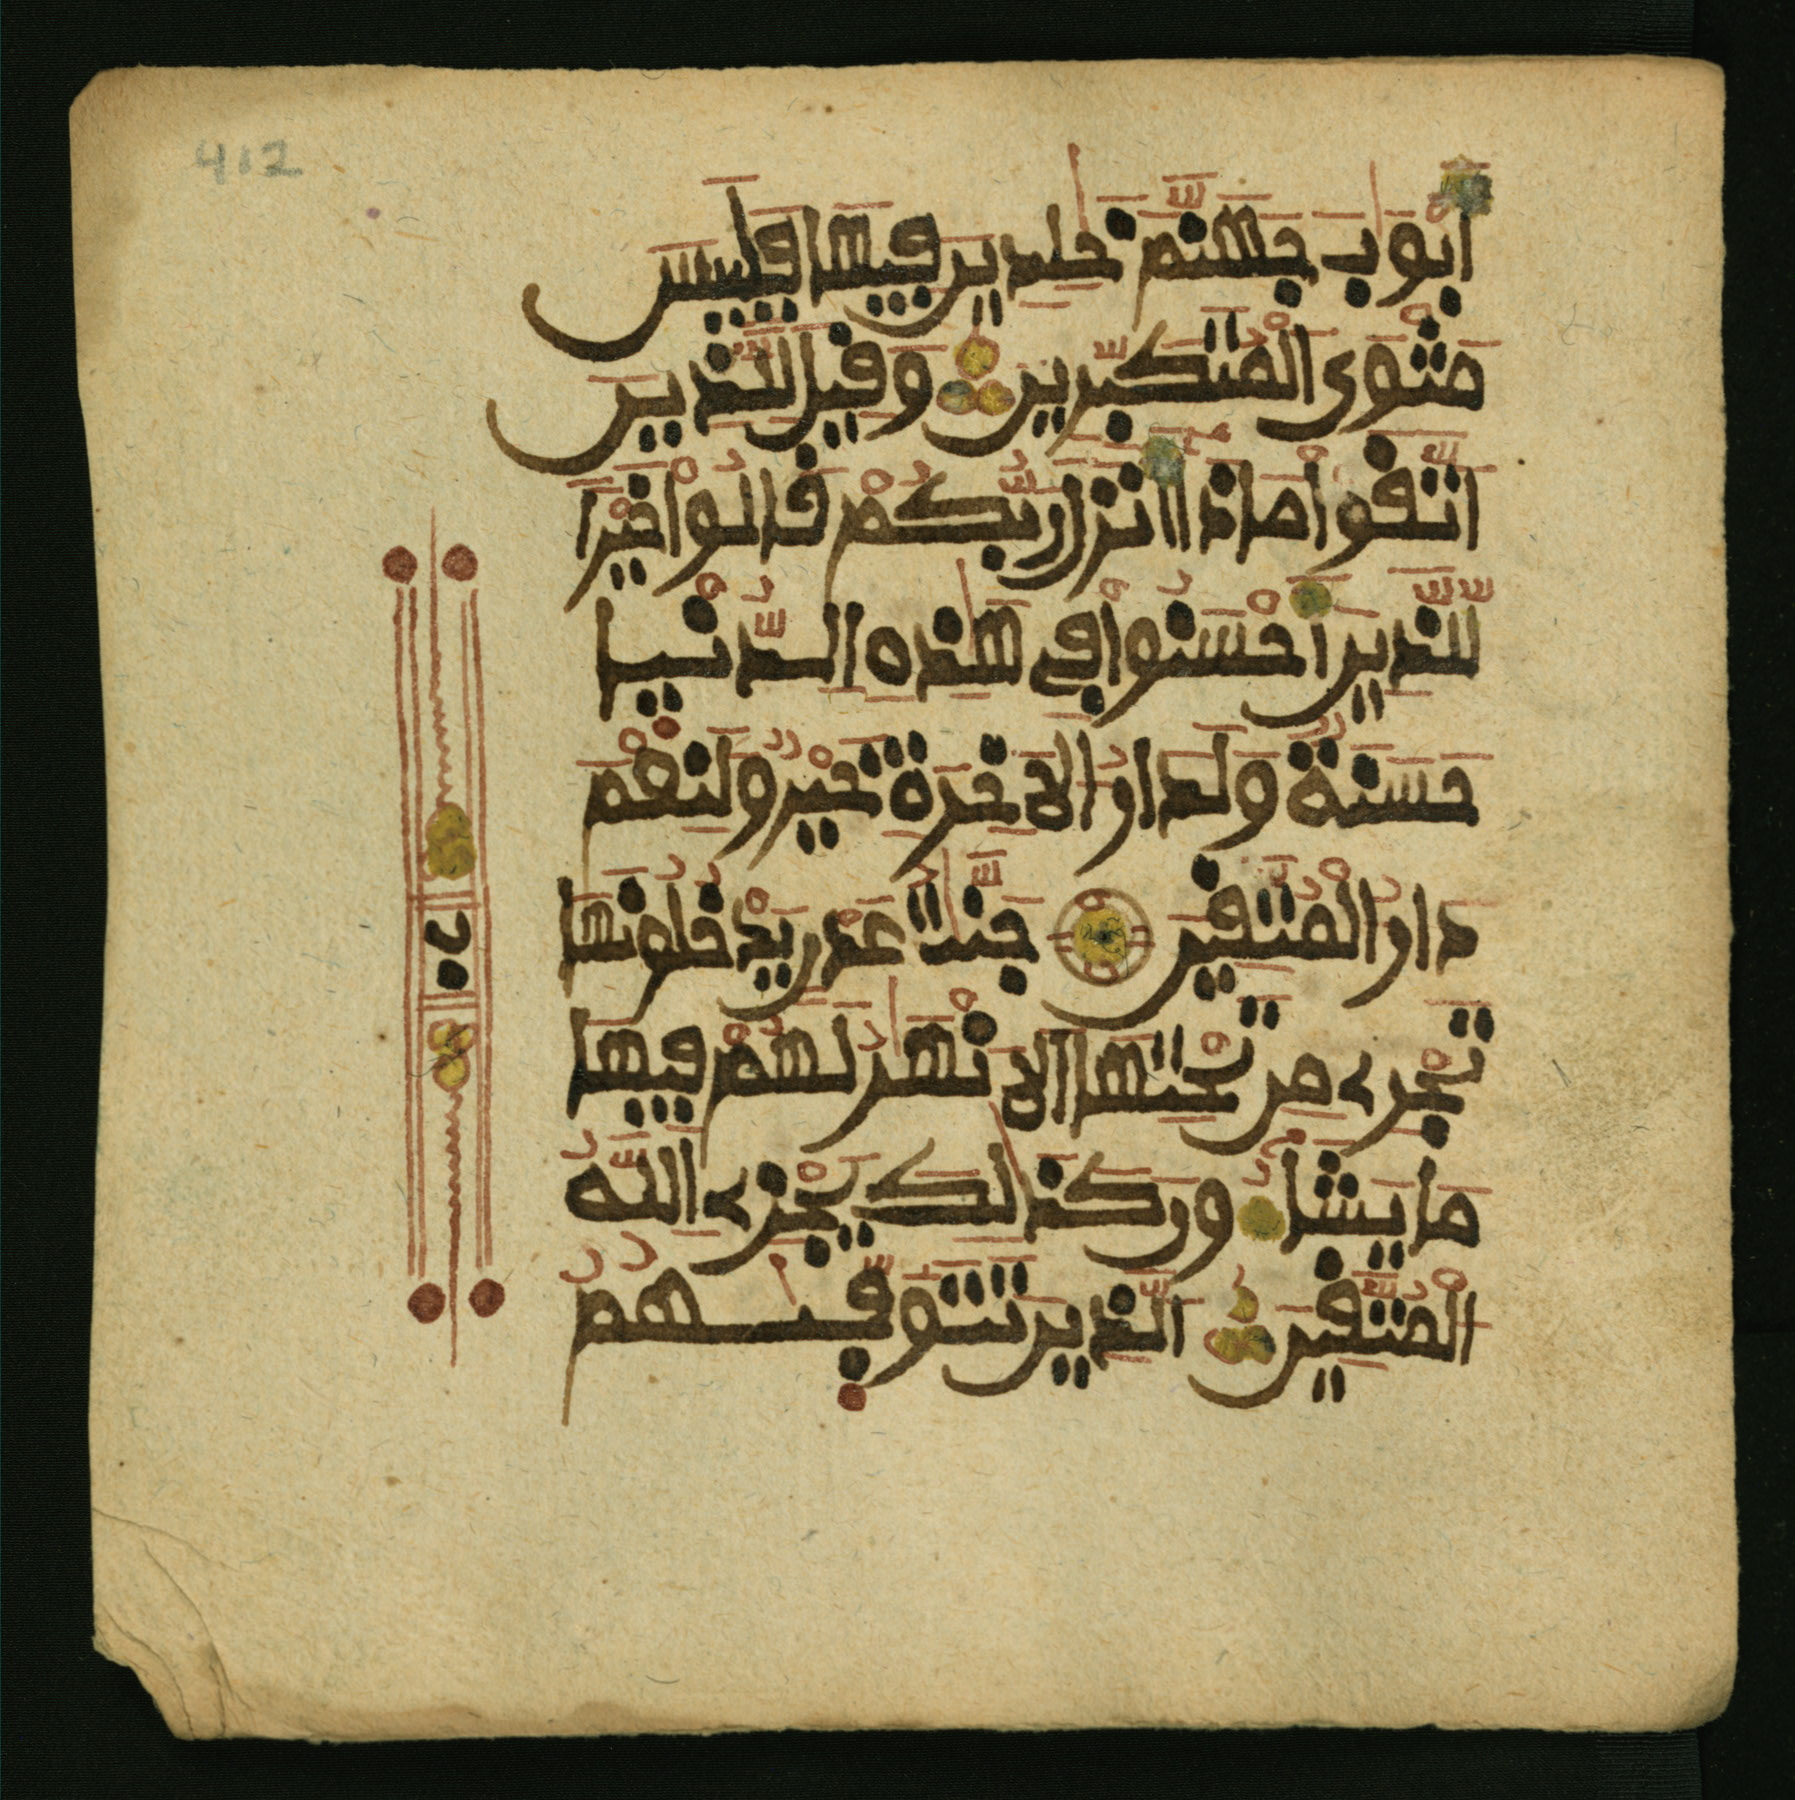 412
أَبْوَٰبَ جَهَنَّمَ خَٰلِدِينَ فِيهَا فَلَبِيسَ
مَثْوَى الْمُتَكَبِّرِينَ وَقِيلَ لِلَّذِينَ
اتَّقَوْا مَاذَا أَنزَلَ رَبُّكُمْ قَالُوا خَيْرًا
لِّلَّذِينَ أَحْسَنُوا فِي هَٰذِهِ الدُّنْيَا
حَسَنَةٌ وَلَدَارُ الْأَخِرَةِ خَيْرٌ وَلَنِعْمَ
دَارُ الْمُتَّقِينَ جَنَّٰتُ عَدْنٍ يَدْخُلُونَهَا
تَجْرِي مِن تَحْتِهَا الْأَنْهَٰرُ لَهُمْ فِيهَا
مَا يَشَاءُونَ كَذَٰلِكَ يَجْزِي اللَّهُ
الْمُتَّقِينَ الَّذِينَ تَتَوَفَّيٰهُمُ